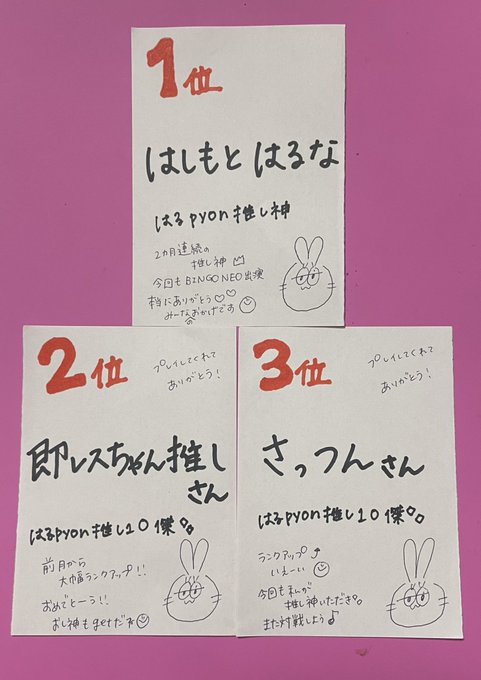 1位
はしもと はるな
はるpyon推し神
2カ月連続の
推し神
今回もBINGO NEO出演
本当にありがとう♡♡
みーなのおかげです
2位
プレイしてくれて
ありがとう!
即レスちゃん推し
さん
はるpyon推し10傑
前月から
大幅ランクアップ!!
おめでとーう!!
おし神もgetだ
3位
プレイしてくれて
ありがとう!
さっつんさん
はるpyon推し10傑
ランクアップ
いえーい
今回も私が
推し神いただき
また対戦しよう♪